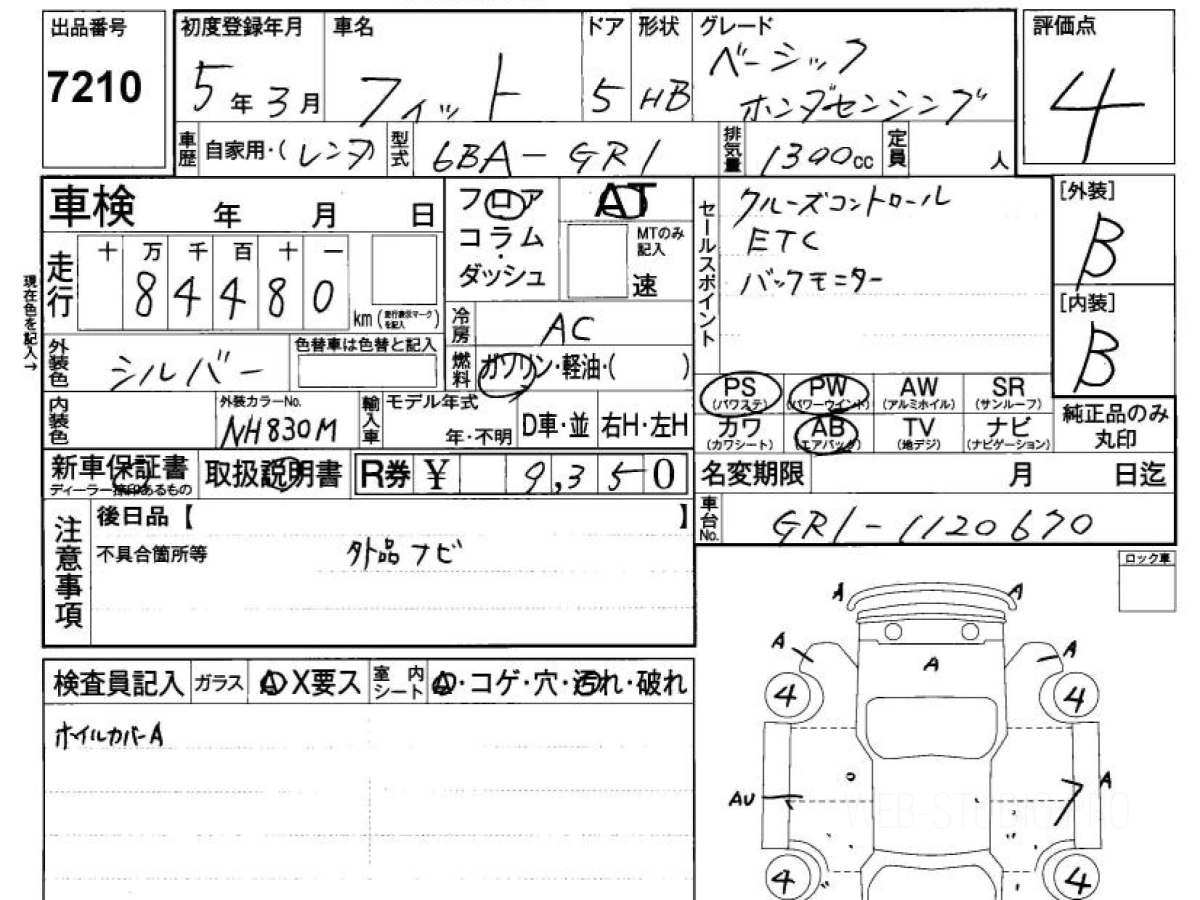 出品番号
7210
初度登録年月
5年3月
車名
フィット
ドア
5
形状
HB
グレード
ベーシック
ホンダセンシング
評価点
4
車歴
自家用・(レンタ)
型式
6BA-GR1
排気量
1300cc
定員
人
車検 年 月 日
走行
十 万 千 百 十 一
8 4 4 8 0
km(走行表示マークを記入)
現在色を記入→
フロア
コラム
・
ダッシュ
AT
MTのみ記入
速
冷房
AC
燃料
ガソリン・軽油・( )
セールスポイント
クルーズコントロール
ETC
バックモニター
[外装]
B
[内装]
B
外装色
シルバー
色替車は色替と記入
内装色
外装カラーNo.
NH830M
輸入車
モデル年式
年・不明
D車・並
右H・左H
PS
(パワステ)
PW
(パワーウインド)
AW
(アルミホイル)
SR
(サンルーフ)
カワ
(カワシート)
AB
(エアバッグ)
TV
(地デジ)
ナビ
(ナビゲーション)
純正品のみ
丸印
新車保証書
ディーラー捺印あるもの
取扱説明書
R券 ¥ 9,350
名変期限 月 日迄
車台No.
GR1-1120670
注意事項
後日品【 】
不具合箇所等
外品ナビ
ロック車
検査員記入
ガラス
A X要ス
室内シート
A・コゲ・穴・汚れ・破れ
ホイルカバーA
A A
A A
A
4 4
AU A
4 4
WEB-STUDIO.PRO